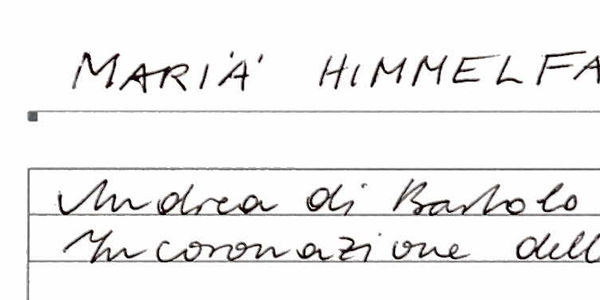 MARIÄ HIMMELFA
Andrea di Bartolo
Incoronazione dell